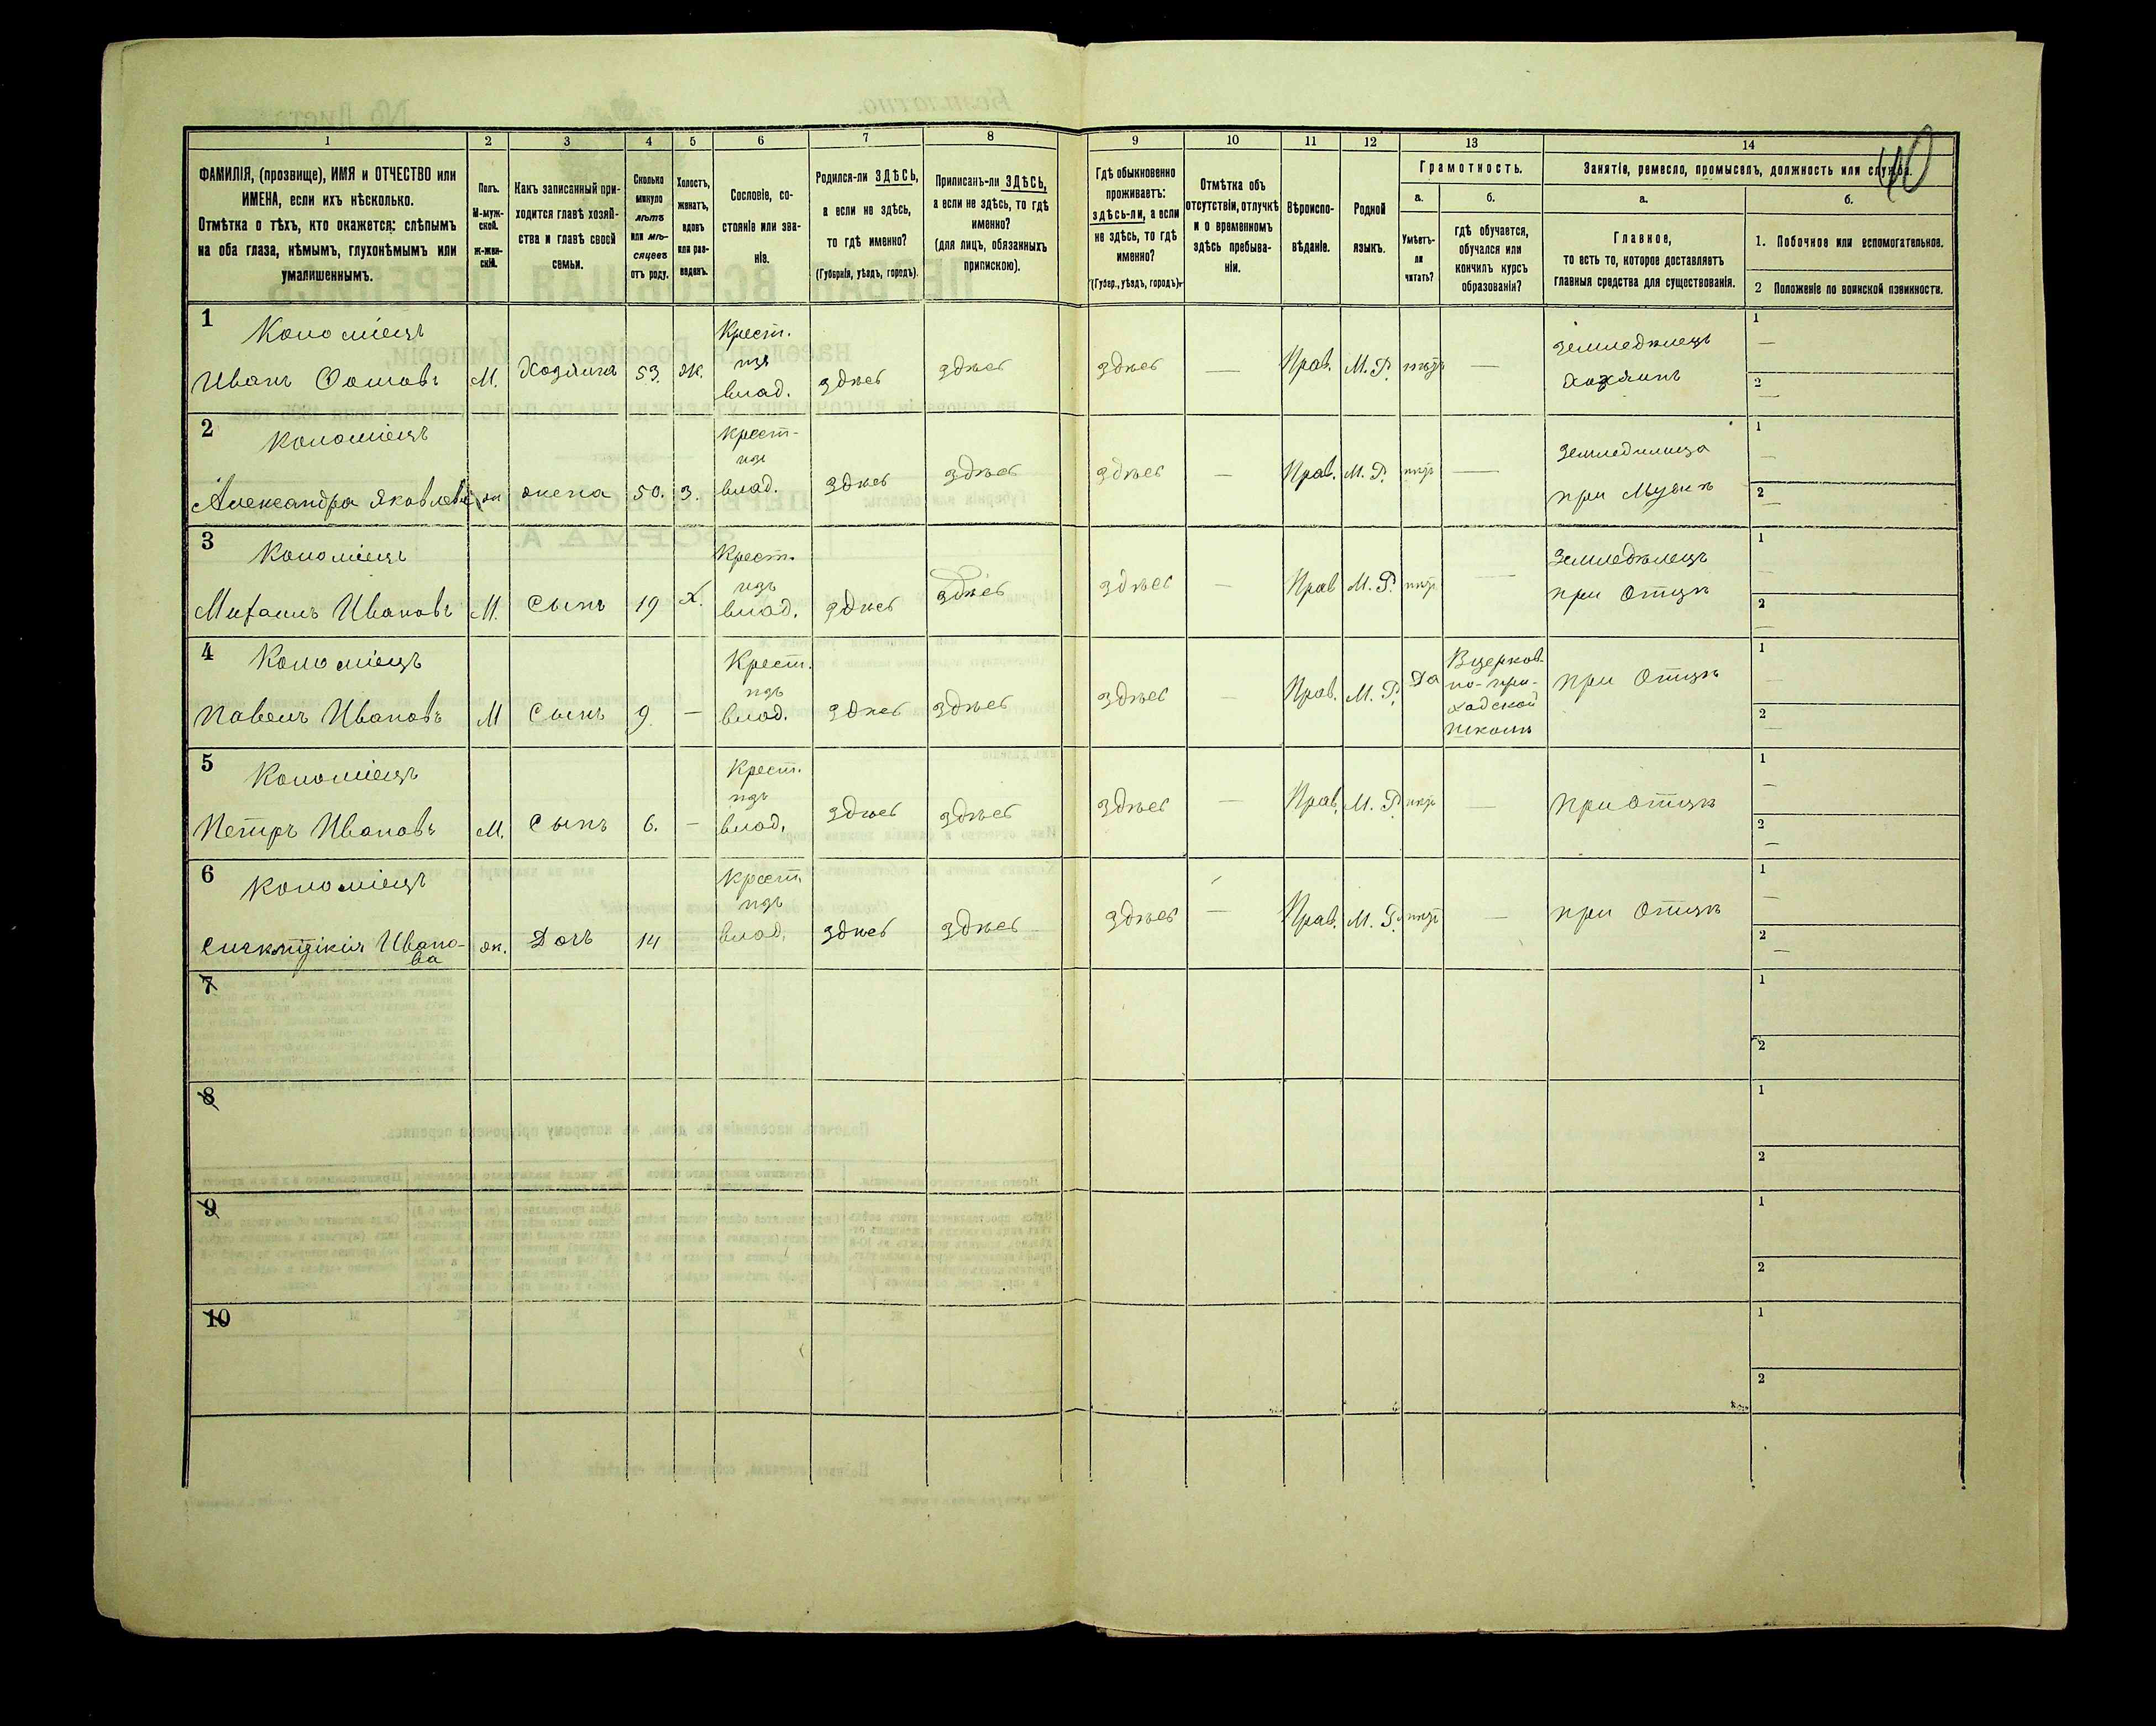 40
1 2 3 4 5 6 7 8 9 10 11 12 13 14
ФАМИЛІЯ, (прозвище), ИМЯ и ОТЧЕСТВО или
ИМЕНА, если ихъ нѣсколько.
Отмѣтка о тѣхъ, кто окажется: слѣпымъ
на оба глаза, нѣмымъ, глухонѣмымъ или
умалишеннымъ.
Полъ.
М-муж-
ской.
Ж-жен-
скій.
Какъ записанный при-
ходится главѣ хозяй-
ства и главѣ своей
семьи.
Сколько
минуло
лѣтъ
или мѣ-
сяцевъ
отъ роду.
Холостъ,
женатъ,
вдовъ
или раз-
веденъ.
Сословіе, со-
стояніе или зва-
ніе.
Родился-ли ЗДѢСЬ,
а если не здѣсь,
то гдѣ именно?
(Губернія, уѣздъ, городъ).
Приписанъ-ли ЗДѢСЬ,
а если не здѣсь, то гдѣ
именно?
(для лицъ, обязанныхъ
припискою).
Гдѣ обыкновенно
проживаетъ:
здѣсь-ли, а если
не здѣсь, то гдѣ
именно?
(Губер., уѣздъ, городъ).
Отмѣтка объ
отсутствіи, отлучкѣ
и о временномъ
здѣсь пребыва-
ніи.
Вѣроиспо-
вѣданіе.
Родной
языкъ.
Грамотность.
а.
Умѣетъ-
ли
читать?
б.
гдѣ обучается,
обучался или
кончилъ курсъ
образованія?
Занятія, ремесло, промыселъ, должность или служба.
а.
Главное,
то есть то, которое доставляетъ
главныя средства для существованія.
б.
1. Побочное или вспомогательное.
2 Положеніе по воинской повинности.
1 Коломіецъ Крест. Земледѣлецъ 1 —
изъ
Иванъ Фомовъ М. Хозяинъ 53. Ж. влад. здѣсь здѣсь здѣсь — Прав. М. Р. нѣтъ — Хозяинъ 2 —
2 Коломіецъ Крест- 1 —
изъ
Александра Яковлева ж жена 50. З. влад. здѣсь здѣсь здѣсь — Прав. М. Р. нѣтъ — при Мужѣ 2 —
3 Коломіецъ Крест. Земледѣлецъ 1 —
изъ
Михаилъ Ивановъ М. Сынъ 19 Х. влад. здѣсь здѣсь здѣсь — Прав М. Р. нѣтъ — при Отцѣ 2 —
4 Коломіецъ Крест. 1 —
изъ
Павелъ Ивановъ М Сынъ 9. — влад. здѣсь здѣсь здѣсь — Прав. М. Р. Да Вцерков-
но-при-
ходской
школѣ
при Отцѣ 2 —
5 Коломіецъ Крест. 1 —
изъ
Петръ Ивановъ М. Сынъ 6. — влад. здѣсь здѣсь здѣсь — Прав. М. Р. нѣтъ — при Отцѣ 2 —
6 Коломіецъ Крест. 1 —
изъ
Ивано-
ва
ж. Дочь 14 влад. здѣсь здѣсь здѣсь — Прав. М. Р. нѣтъ — при Отцѣ 2 —
7 1
2
8 1
2
9 1
2
10 1
2